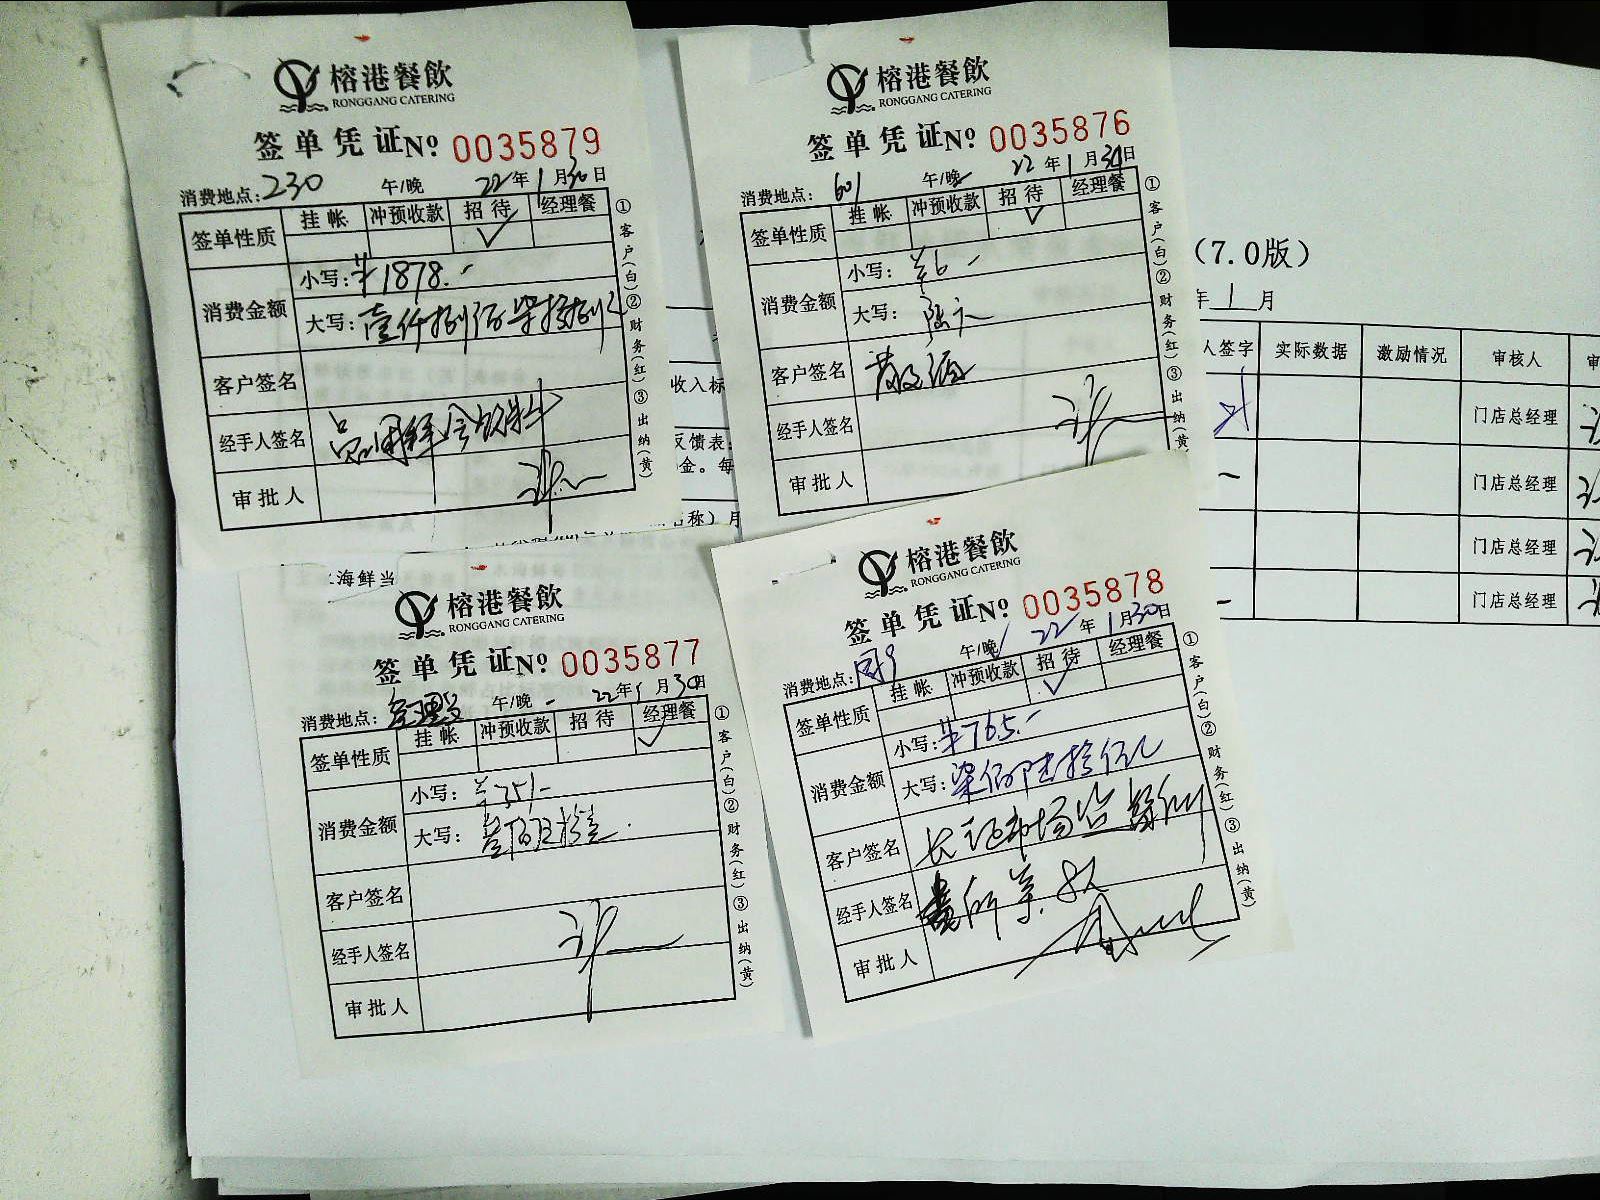 榕港餐飲
RONGGANG CATERING
签单凭证No 0035879
消费地点:230 午/晚 22年1月30日
签单性质 挂帐 冲预收款 招待 经理餐
✓
消费金额 小写:¥1878.-
大写:壹仟捌佰柒拾捌元
客户签名
经手人签名
审批人
①客户(白)②财务(红)③出纳(黄)
榕港餐飲
RONGGANG CATERING
签单凭证No 0035876
消费地点:601 午/晚 22年1月30日
签单性质 挂帐 冲预收款 招待 经理餐
✓
消费金额 小写:¥6-
大写:陆元
客户签名
经手人签名
审批人
①客户(白)②财务(红)③出纳(黄)
海鲜当
榕港餐飲
RONGGANG CATERING
签单凭证No 0035877
消费地点: 午/晚 22年1月30日
签单性质 挂帐 冲预收款 招待 经理餐
✓
消费金额 小写:¥351-
大写:叁佰伍拾壹
客户签名
经手人签名
审批人
①客户(白)②财务(红)③出纳(黄)
榕港餐飲
RONGGANG CATERING
签单凭证No 0035878
消费地点: 午/晚 22年1月30日
签单性质 挂帐 冲预收款 招待 经理餐
✓
消费金额 小写:¥765.-
大写:柒佰陆拾伍元
客户签名
经手人签名 8人
审批人
①客户(白)②财务(红)③出纳(黄)
(7.0版)
年1月
人签字 实际数据 激励情况 审核人
门店总经理
门店总经理
门店总经理
门店总经理
收入标
反馈表:
金。每
名称)月